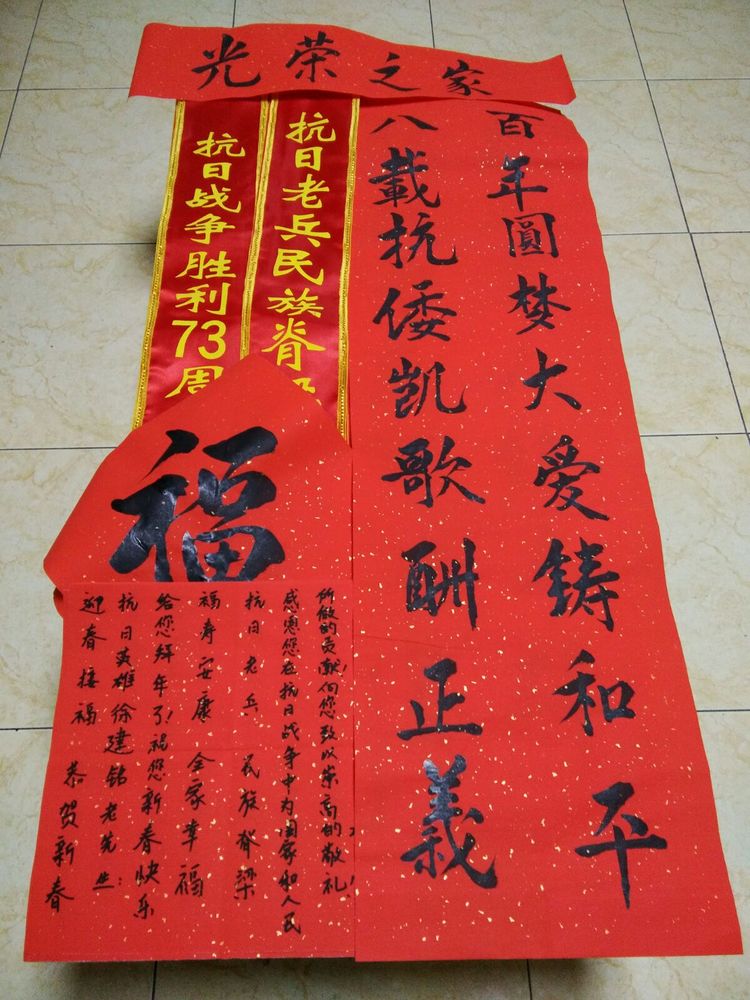 光荣之家
八載抗倭凯歌酬正義
百年圓梦大爱铸和平
抗日老兵民族脊
抗日战争胜利73周
福
迎春接福 恭贺新春
抗日英雄徐建铭老先生：
给您拜年了！祝您新春快乐
福寿安康 全家幸福
抗日老兵 民族脊梁
感恩您在抗日战争中为国家和人民
所做的贡献！向您致以崇高的敬礼！